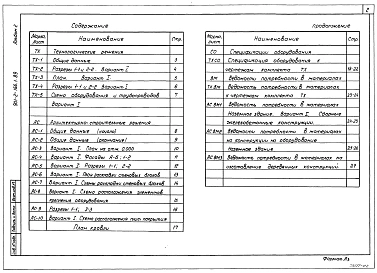 2
Альбом 2
901-2-166.1.89
Содержание
Марка, лист
Наименование
Стр.
ТХ
Технологические решения
ТХ-1
Общие данные
3
ТХ-2
Разрезы 1-1 и 2-2 Вариант I
4
ТХ-3
План. Вариант I
5
ТХ-4
Разрезы 1-1 и 2-2 Вариант I
6
ТХ-5
Схема оборудования и трубопроводов
7
Вариант I
АС
Архитектурно-строительные решения
АС-1
Общие данные (начало)
8
АС-2
Общие данные (окончание)
9
АС-3
Вариант I. План на отм. 0.000
10
АС-4
Вариант I. Фасады
11
АС-5
Вариант I. Разрезы 1-1, 2-2
12
АС-6
Вариант I. План раскладки стеновых блоков
13
АС-7
Вариант I. Схемы раскладки стеновых блоков
14
АС-8
Вариант I. Схема расположения элементов
крепления оборудования
15
АС-9
Разрезы 1-1, 2-2
16
АС-10
Вариант I. Схема расположения плит покрытия
План кровли
17
продолжение
Марка, лист
Наименование
Стр
СО
Спецификации оборудования
ТХ.СО
Спецификация оборудования к
чертежам комплекта ТХ
18-22
ВМ
Ведомости потребности в материалах
ТХ.ВМ
Ведомость потребности в материалах
к чертежам комплекта ТХ
23-24
АС.ВМ1
Ведомость потребности в материалах
Наземное здание. Вариант I. Сборные
железобетонные конструкции.
24-25
АС.ВМ2
Ведомость потребности в материалах на
конструкции на оборудование
Наземное здание
25-26
АС.ВМ3
Ведомость потребности в материалах на
изготовление деревянных конструкций
27
Формат А3